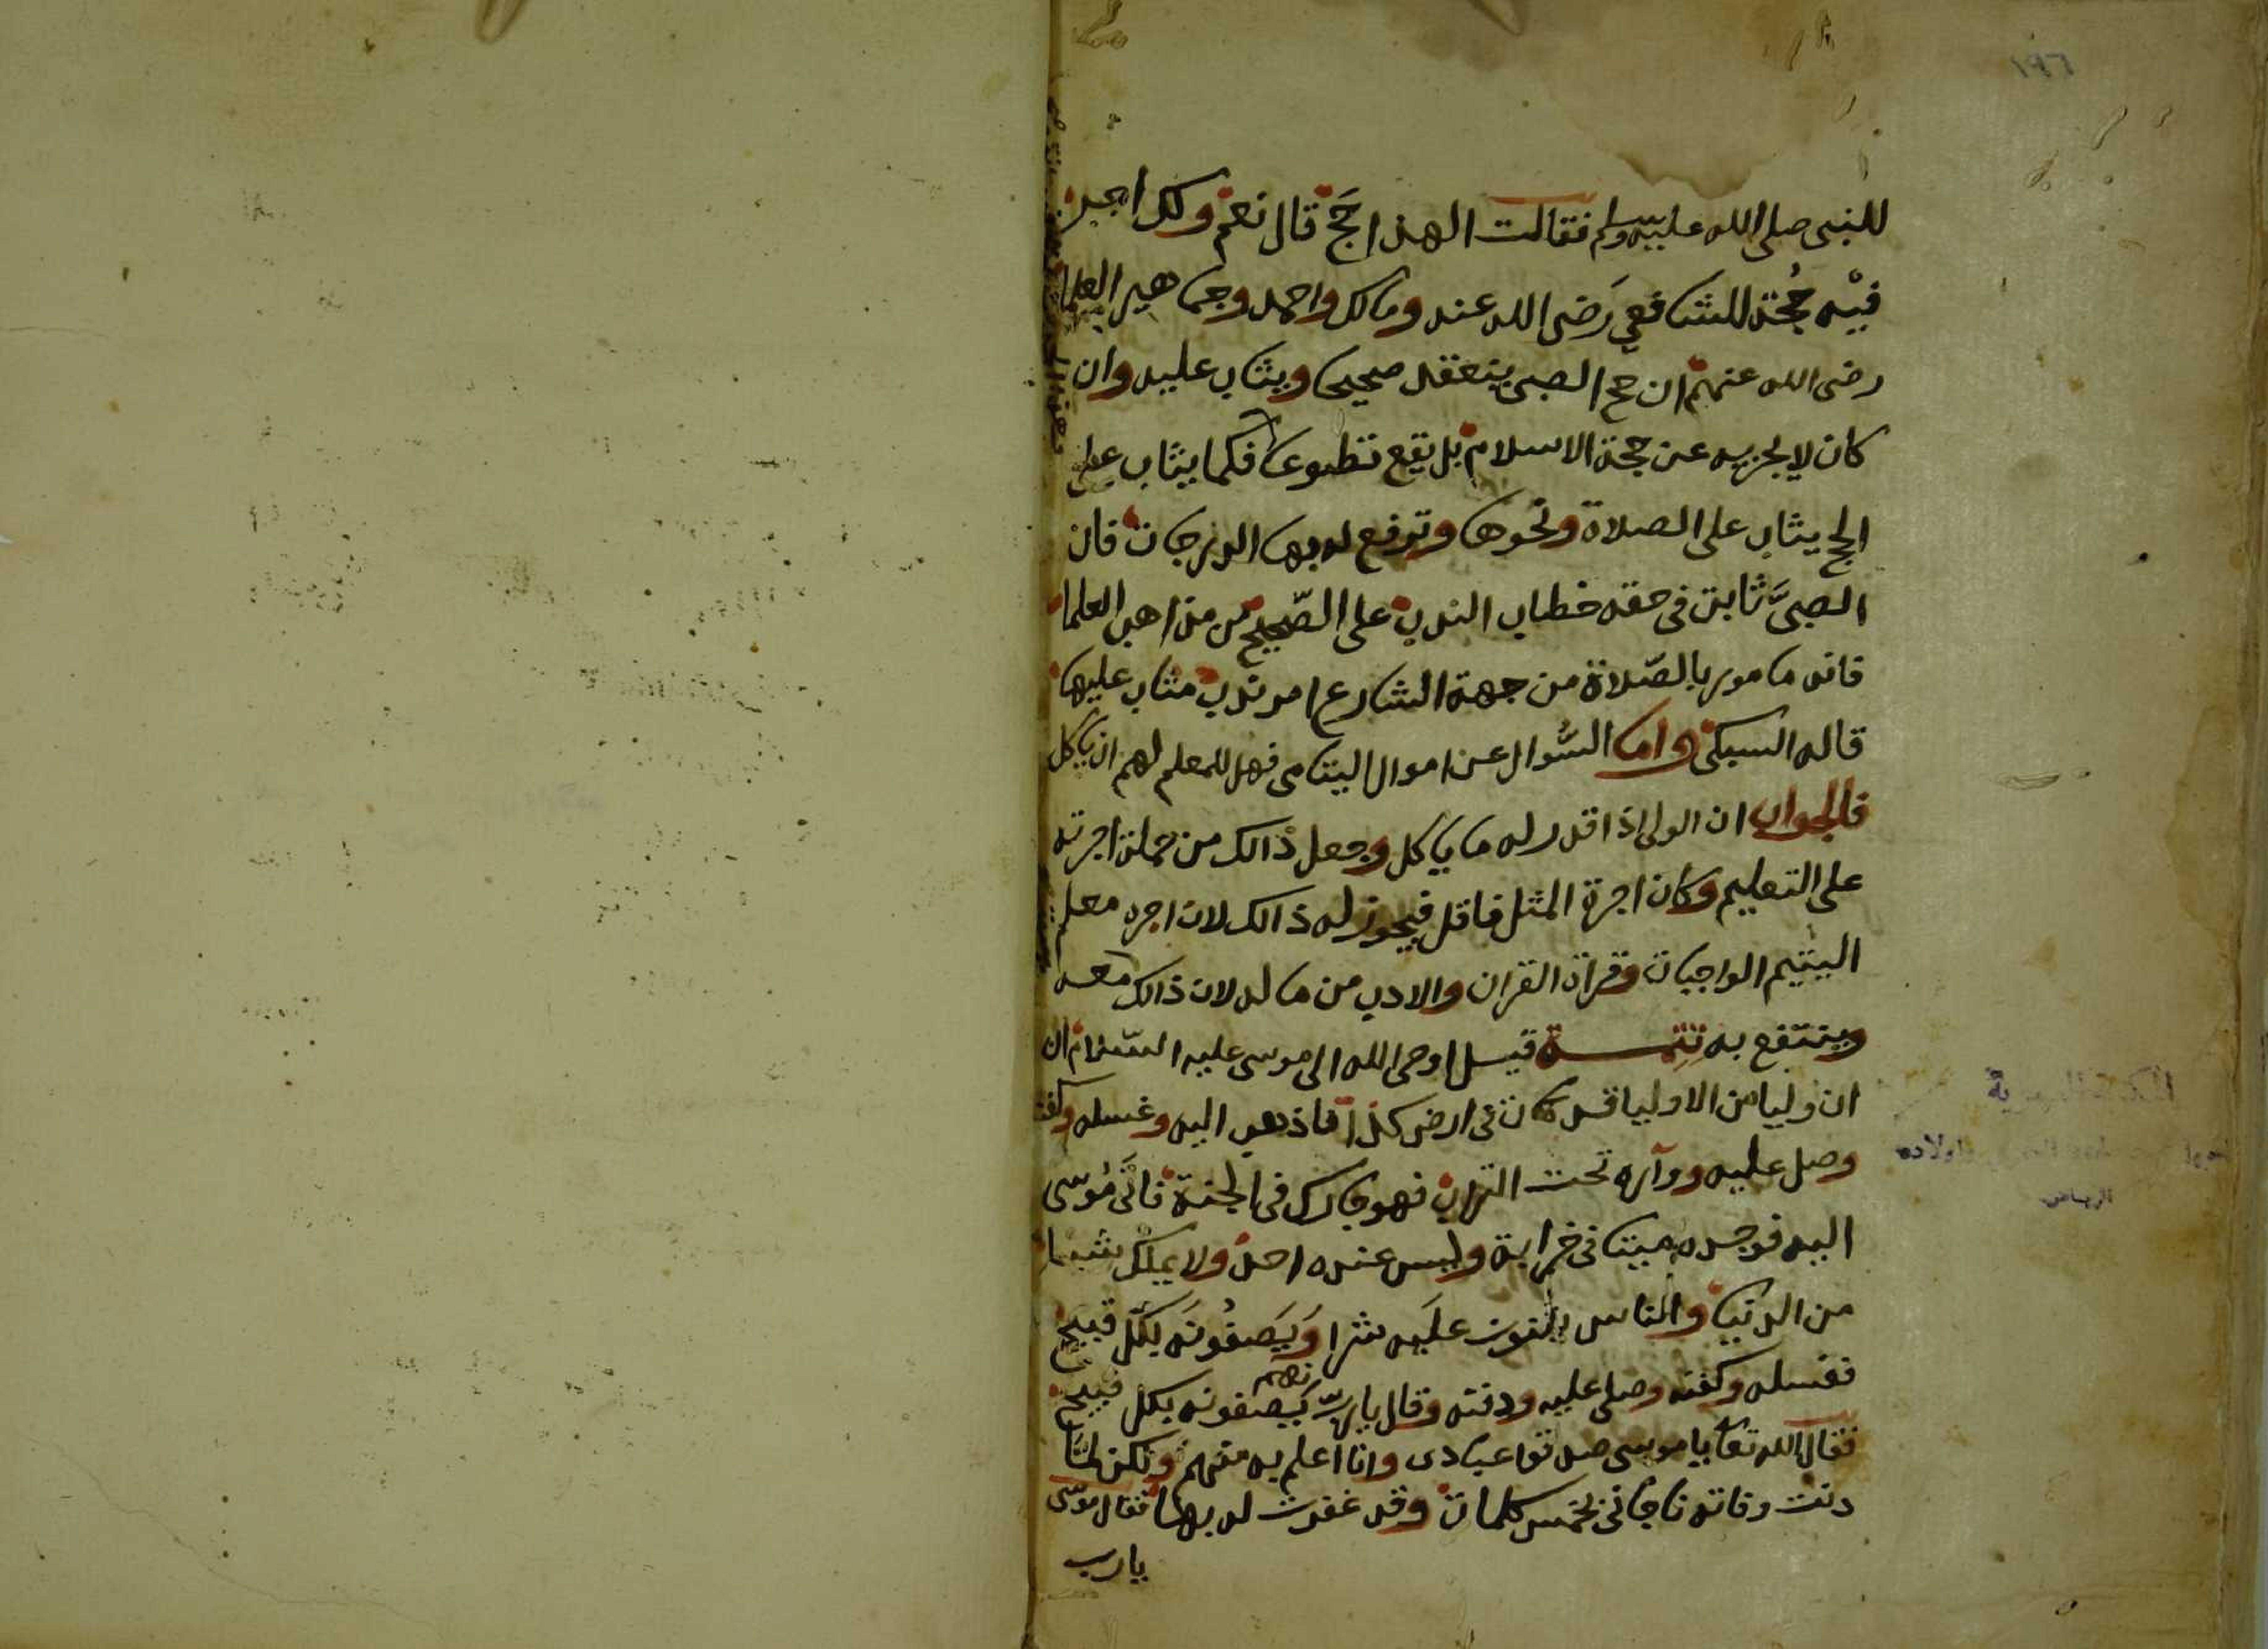 ١٩٦
للنبي صلى الله عليه وسلم فقالت الهذا حَجٌّ قال نعم ولك اجر
فيْه حُجّة للشافعي رَضى الله عنه ومالك واحمد وجماهير العلما
رضى الله عنهم ان حج الصبى ينعقد صحيحا ويثاب عليه وان
كان لا يجزيه عن حجة الاسلام بل يقع تطوعا فكما يثاب على
الحج يثاب على الصلاة ونحوها وترفع له بها الدرجات فان
الصبىَّ ثابت فى حقه خطاب الندب على الصّحيح من مذاهب العلما
فانه مامور بالصّلاة من جهة الشارع امر ندب مثاب عليها
قاله السبكى واما السُّوال عن اموال اليتامى فهل للمعلم لهم ان ياكل
فالجواب ان الولى اذا قدر له ما ياكل وجعل ذالك من جملة اجرته
على التعليم وكان اجرة المثل فاقل فيجوز له ذالك لان اجره معلم
اليتيم الواجبات وقراة القران والادب من ماله لان ذالك معه
وينتفع به تتمة قيل اوحى الله الى موسى عليه السّلام ان
ان وليا من الاوليا قد مات فى ارض كذا فاذهب اليه وغسله وكفنه
وصل عليه وواره تحت التراب فهو جارك فى الجنة فاتَى مُوسى
اليه فوجده ميتا فى خرابة وليس عنده احد ولا يملك شيئا
من الدنيا والناس يثنون عليَه شرا وَيَصفُونَه بكل قبيح
فغسله وكفنه وصلى عليه ودفنه وقال يا ربّ انهم يَصفونه بكل قبيح
فقال الله تعا يا موسى صدقوا عبادى وانا اعلم به منهم ولكن لما
دنت وفاته ناجانى بخمس كلمات وقد غفرت له بها فقال موسى
يا رب